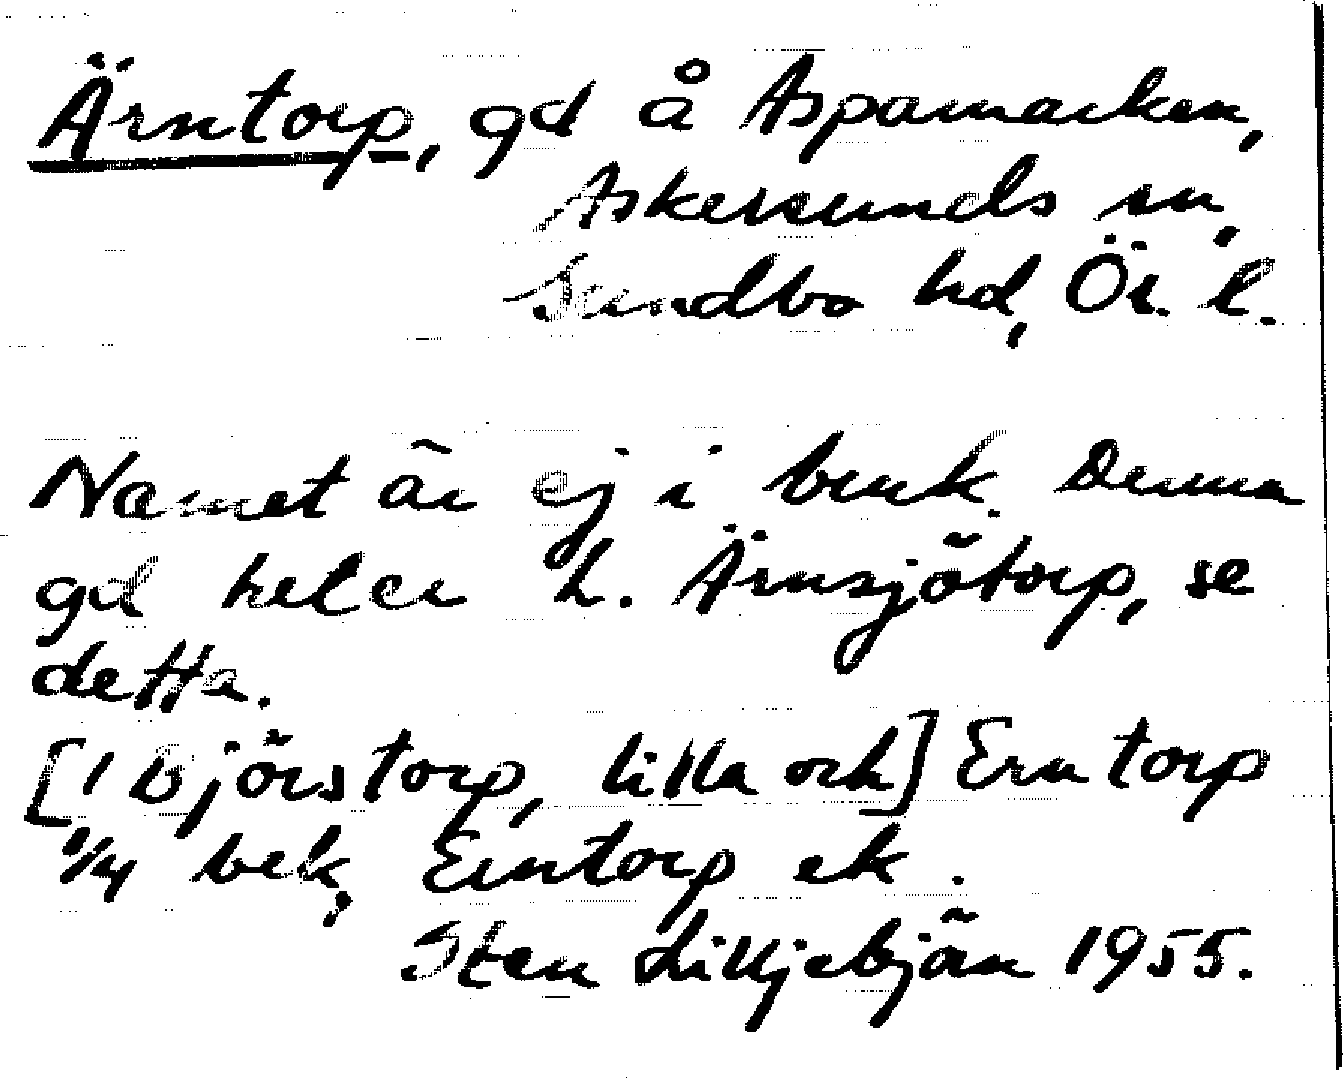 Ärntorp, gd å Aspamarken,
Askersunds sn,
Sundbo hd, Ör. l.
Namet är ej i bruk. Denna
gd heter L. Ärnsjötorp, se
detta.
[1 Djörstorp, lilla och] Erntorp
1/4 bek, Erntorp ek.
Sten Lilljebjän 1955.